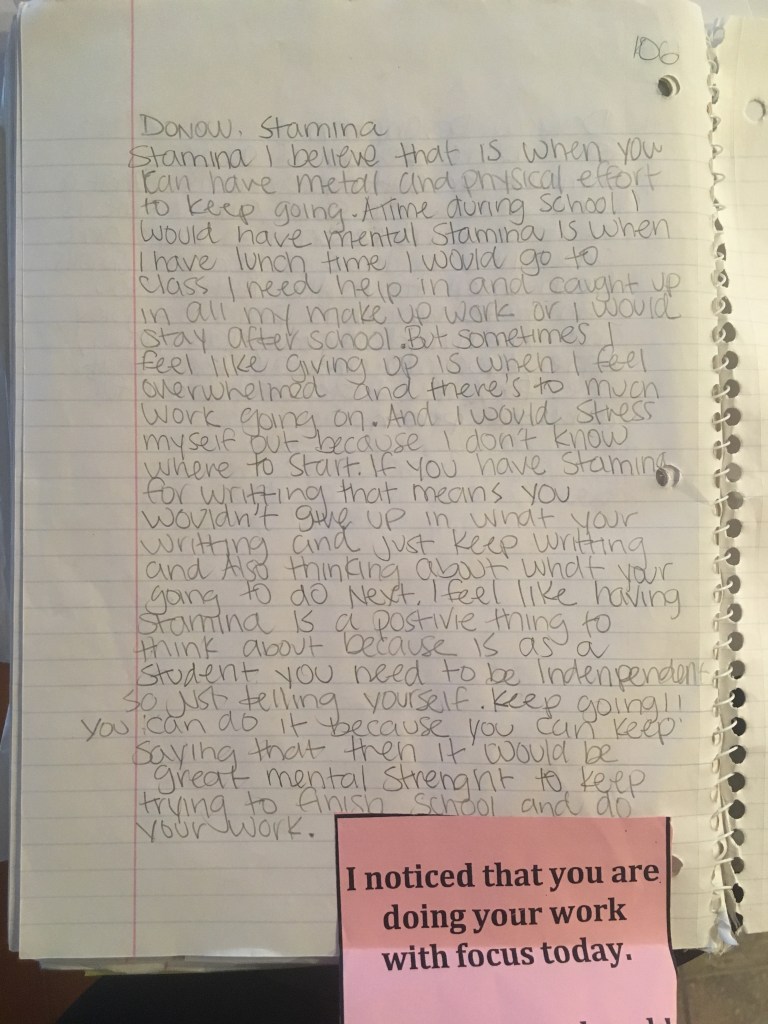 106
DONOW. Stamina
Stamina I believe that is when you
can have metal and physical effort
to keep going. A Time during school I
would have mental Stamina is when
I have lunch time I would go to
class I need help in and caught up
in all my make up work or I would
stay after school. But sometimes I
feel like giving up is when I feel
overwhelmed and there's to much
work going on. And I would Stress
myself out because I don't know
where to start. If you have Stamina
for writting that means you
wouldn't give up in what your
writting and just keep writting
and Also thinking about what your
going to do Next. I feel like having
Stamina is a postivie thing to
think about because is as a
student you need to be Indenpendent
so just telling yourself. Keep going!!
you can do it because you can keep
saying that then it would be
great mental Strenght to keep
trying to finish school and do
your work.
I noticed that you are
doing your work
with focus today.